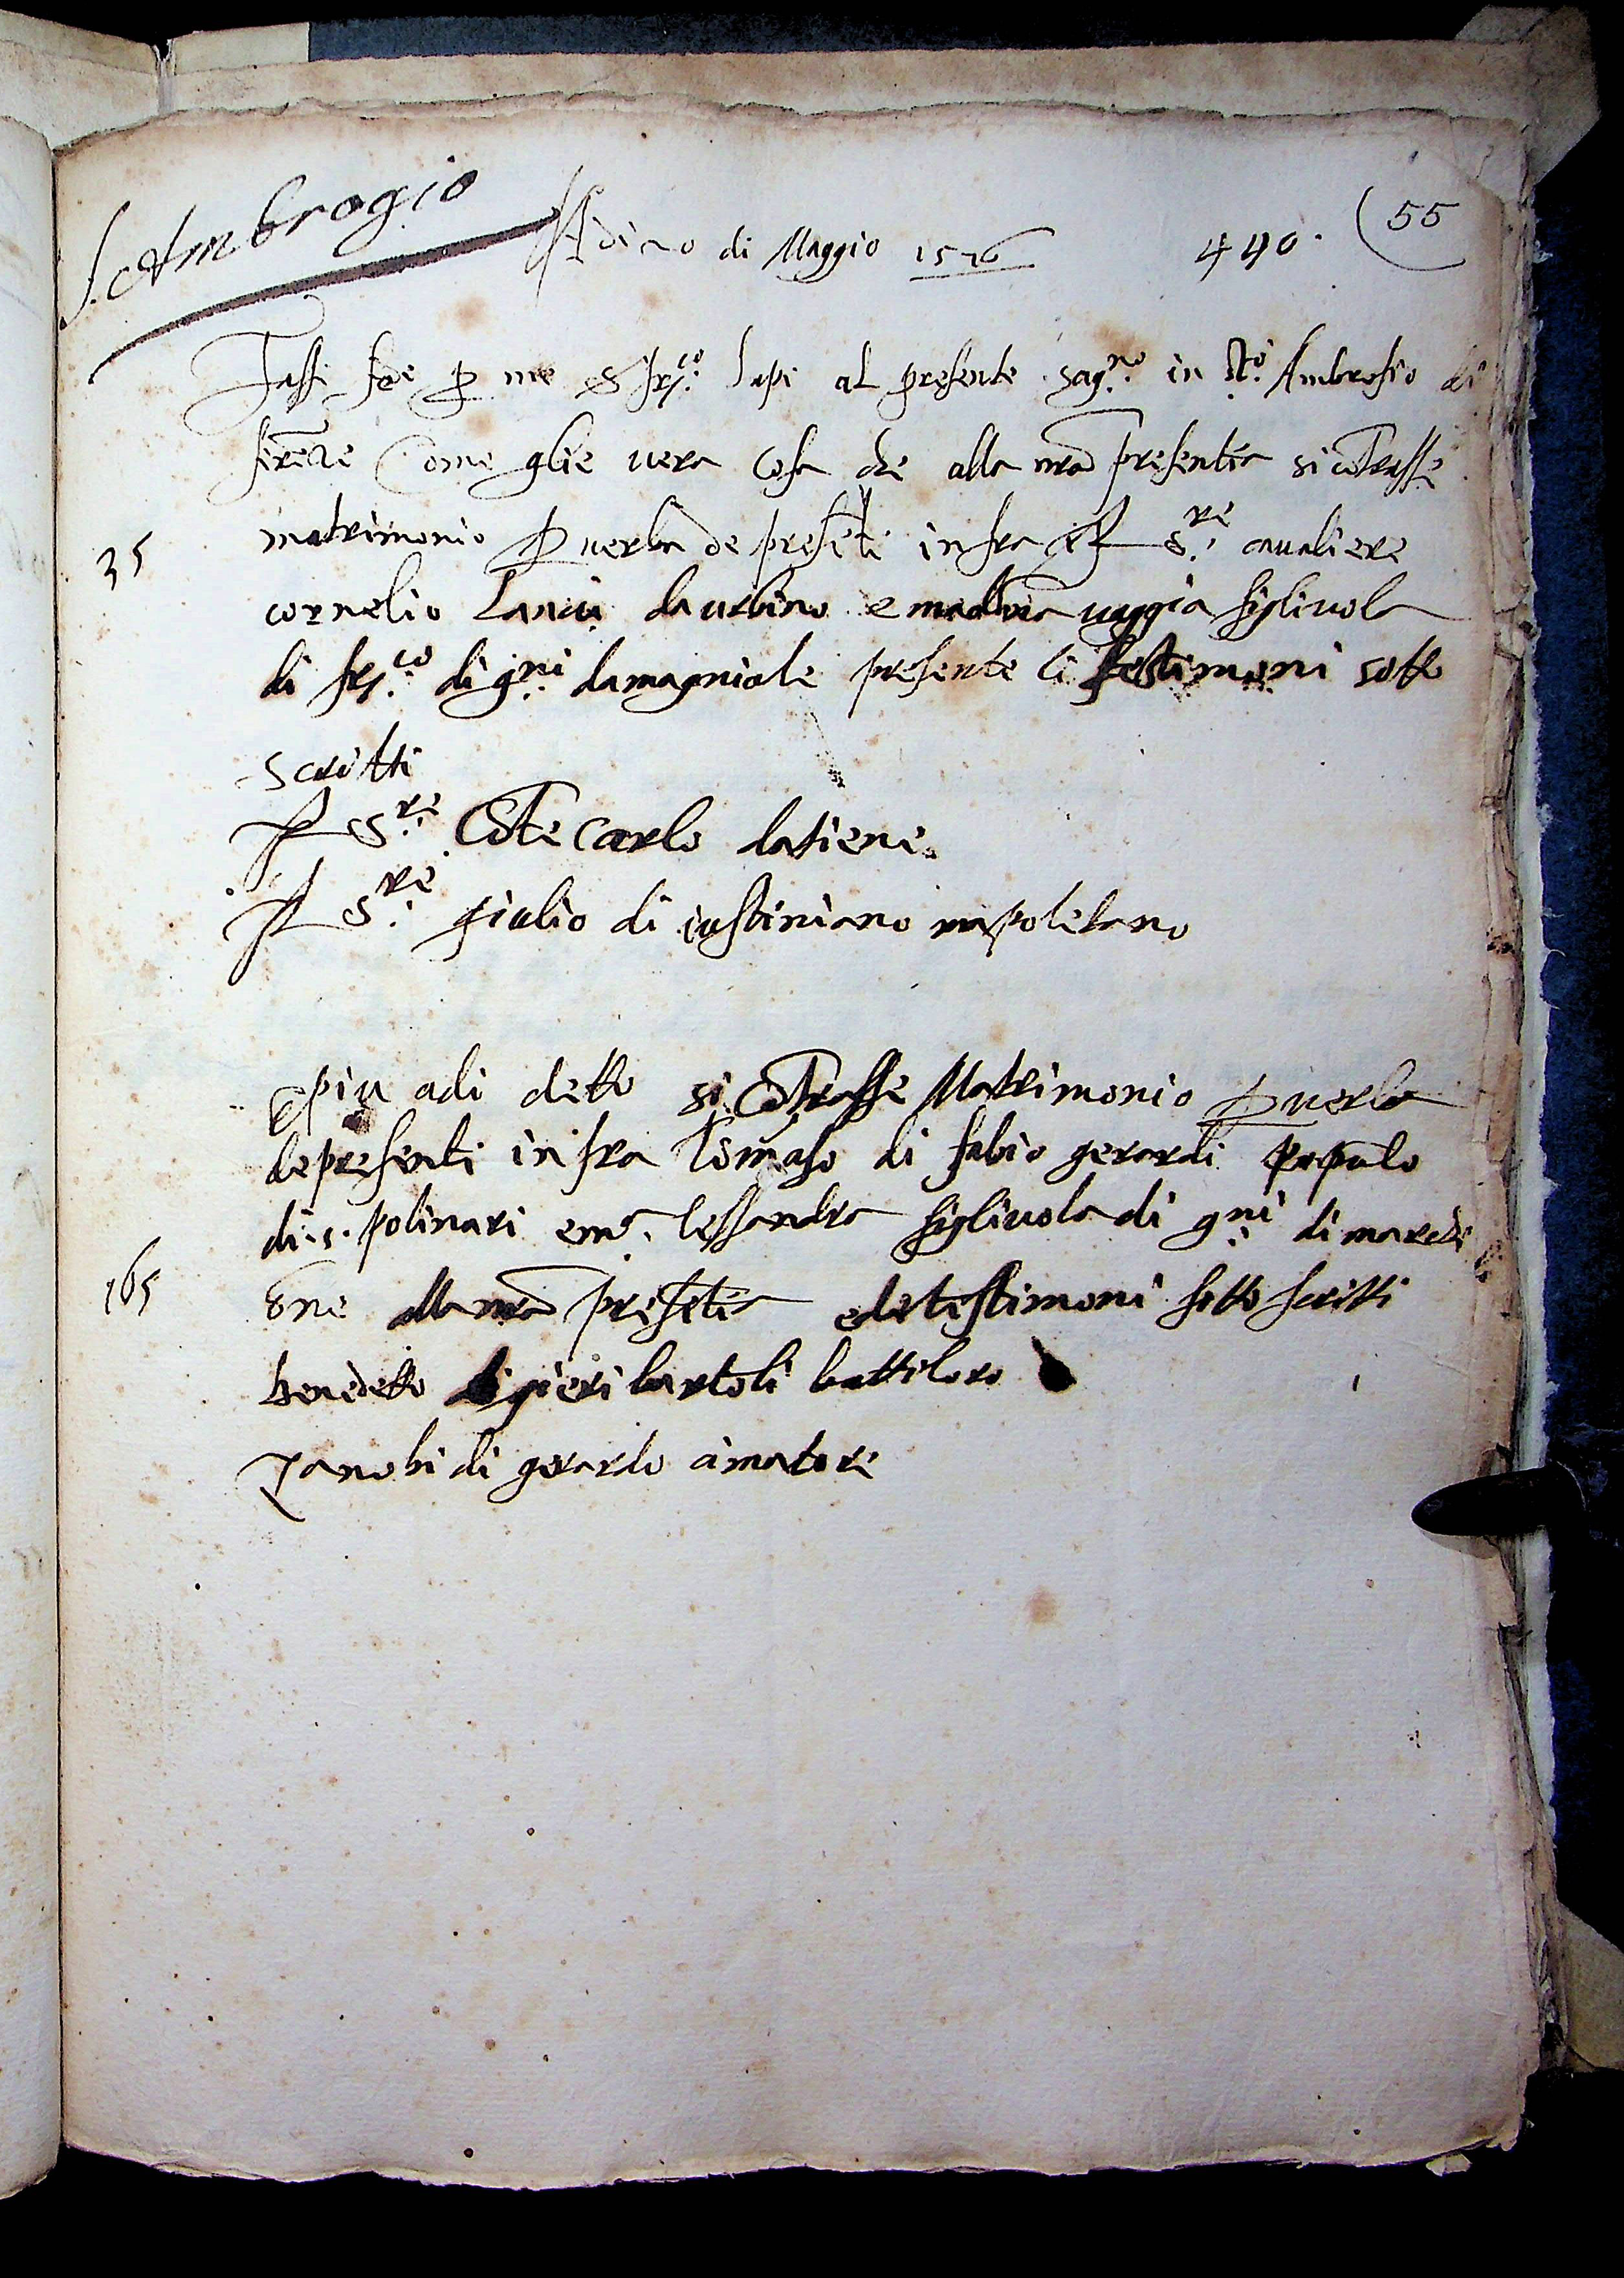 S. Ambrogio
Adi 10 di Maggio 1576 440. 55
Fassi fede p me S fr.co lapi al presente sag.no in sto. Ambrosio di
firēze Come glie vera cosa che alla nra presentia si cōtrasse
35 matrimonio p verba de presēti infra il S.re cavaliere
cornelio Lanci da urbino e madōna vaggia figliuola
di fr.co di g.ni damagniale presente li testimoni sotto
scritti
Il S.re Cōte Carlo datiene
Il S.re giulio di iustiniano napoletano
E piu adi detto si cōtrasse Matrimonio p verba
de presenti infra Tōmaso di fabio gerardi popolo
di s. polinari e m.a lessandra figliuola di g.ni di
165 alla nra presētia e de testimoni sotto scritti
benedetto di pieri bartoli battiloro
Zanobi di gerardo cimatore